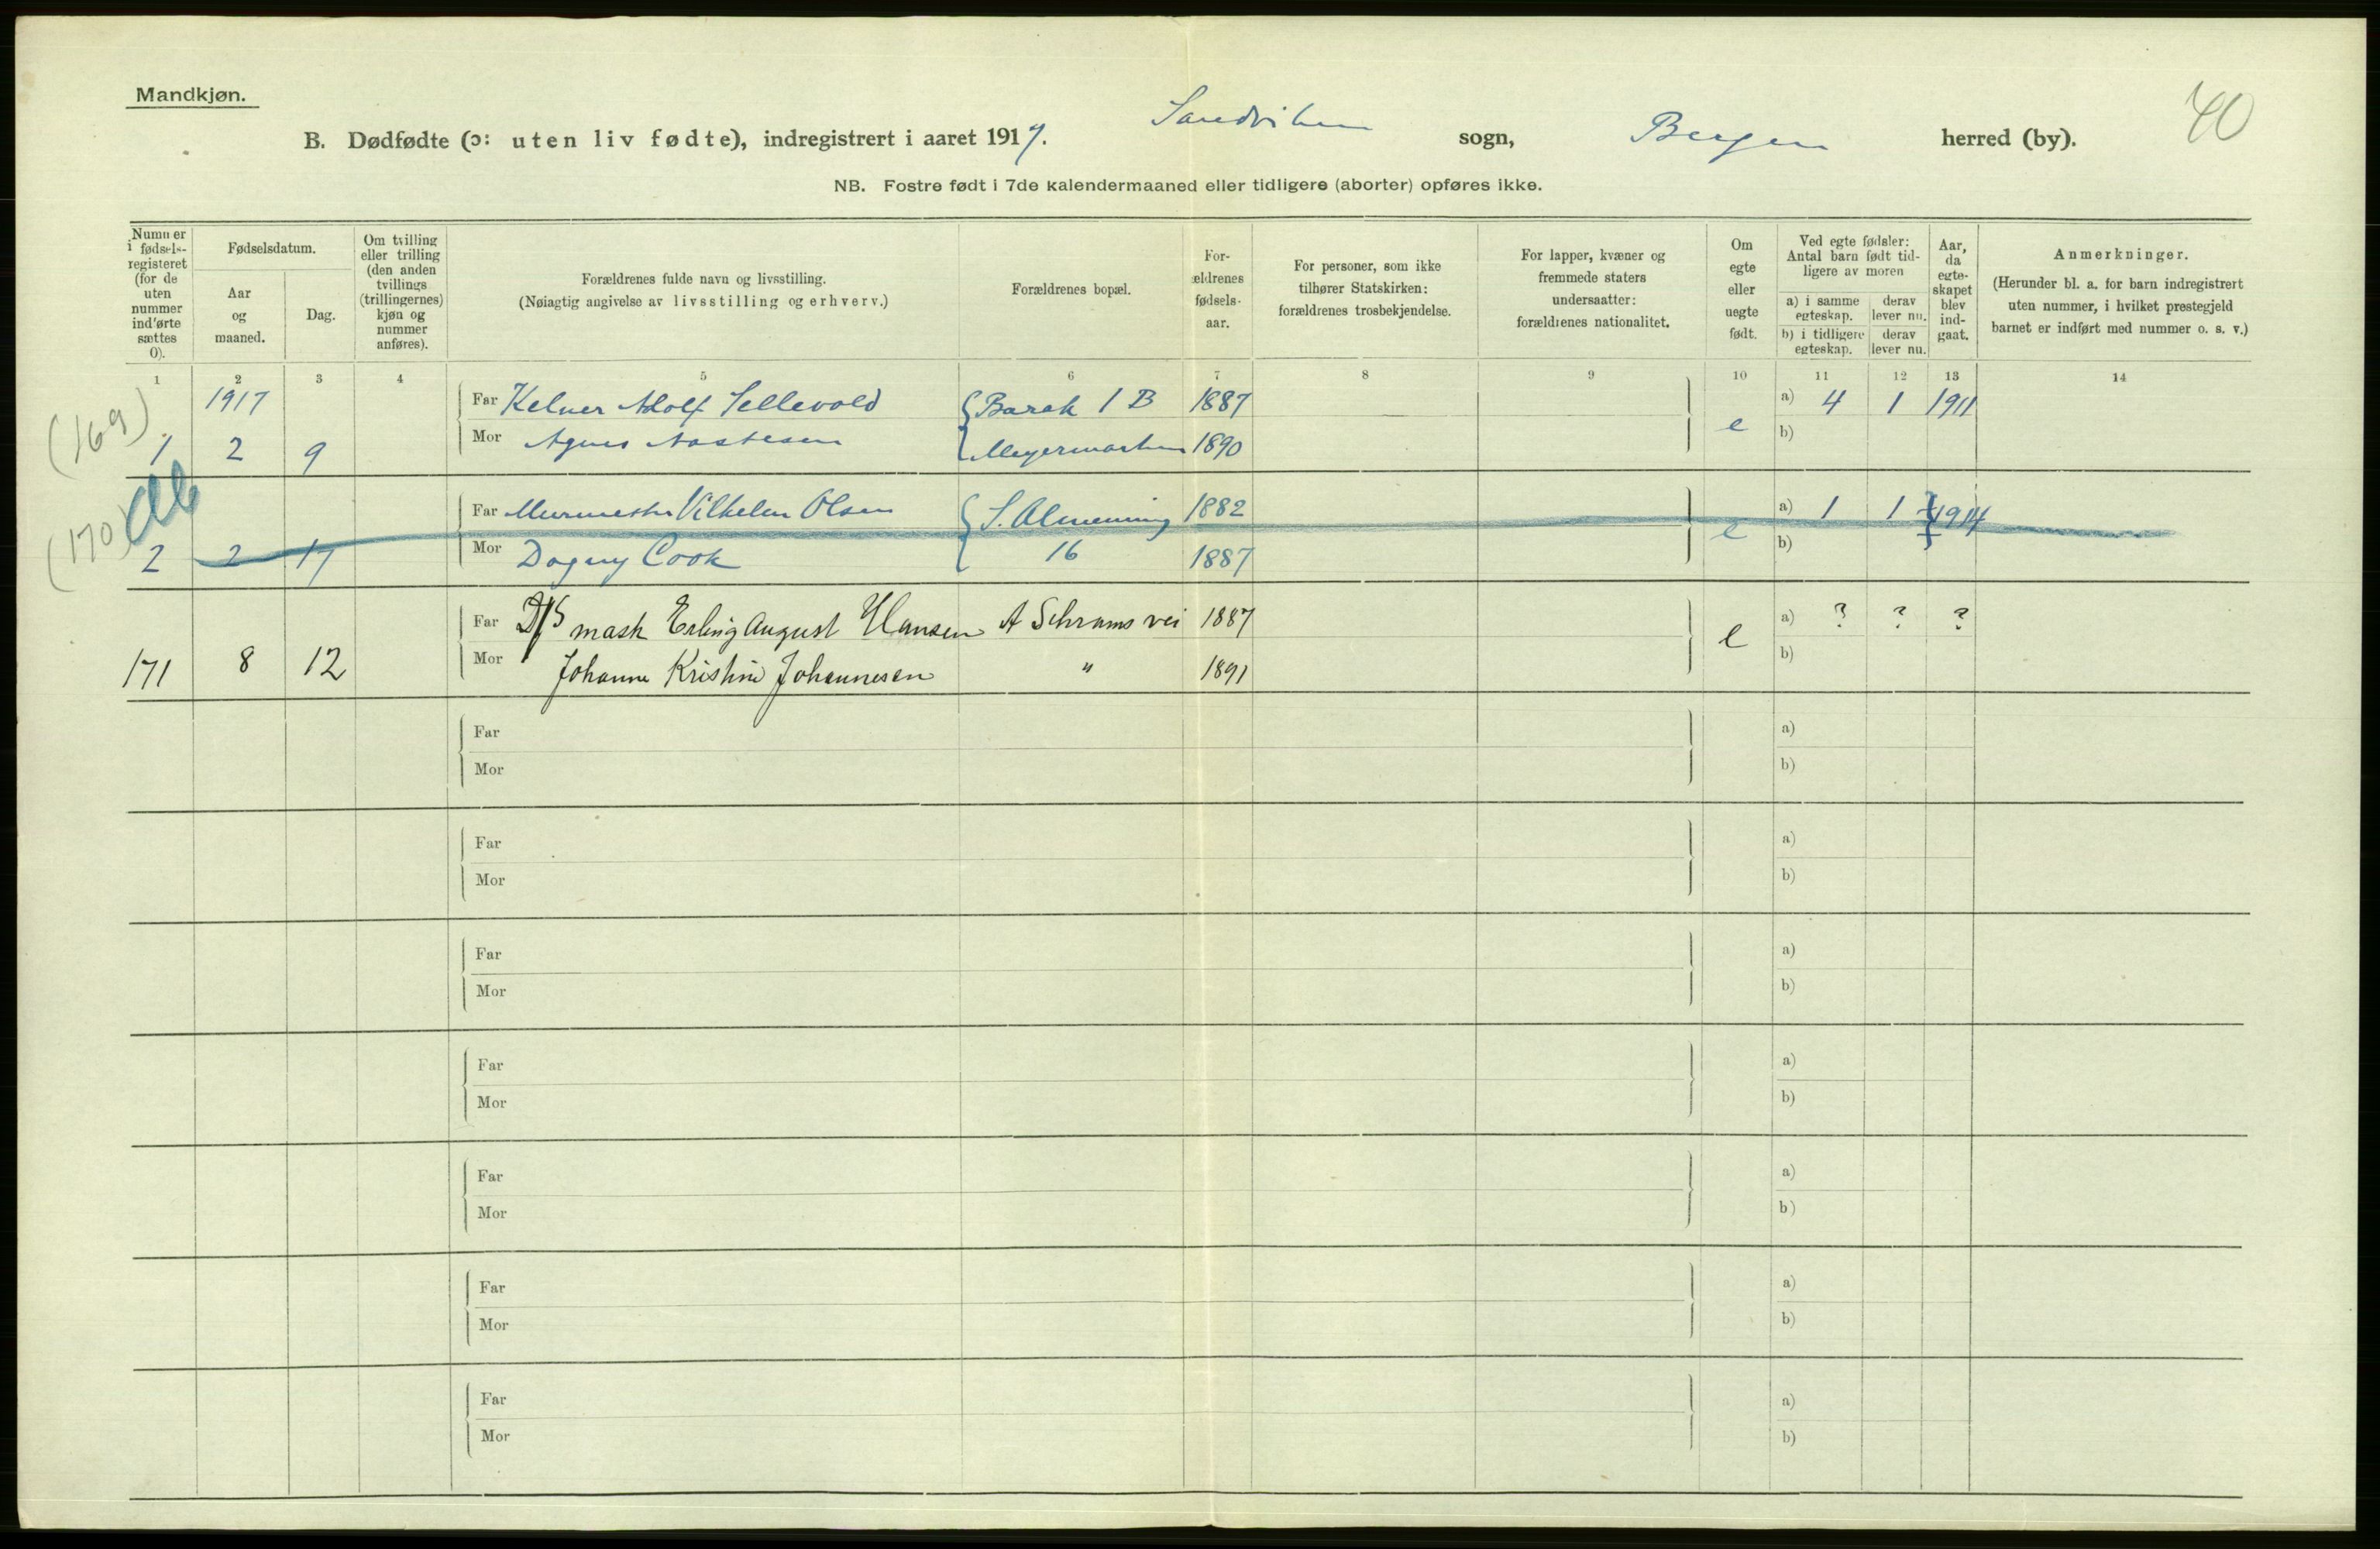 Mandkjøn.
40
B. Dødfødte (ɔ: uten liv fødte), indregistrert i aaret 1917. Sandviken sogn, Bergen herred (by).
NB. Fostre født i 7de kalendermaaned eller tidligere (aborter) opføres ikke.
Nummer
i fødsels-
registeret
(for de
uten
nummer
indførte
sættes
0).
Fødselsdatum.
Aar
og
maaned.
Dag.
Om tvilling
eller trilling
(den anden
tvillings
(trillingernes)
kjøn og
nummer
anføres).
Forældrenes fulde navn og livsstilling.
(Nøiagtig angivelse av livsstilling og erhverv.)
Forældrenes bopæl.
For-
ældrenes
fødsels-
aar.
For personer, som ikke
tilhører Statskirken:
forældrenes trosbekjendelse.
For lapper, kvæner og
fremmede staters
undersaatter:
forældrenes nationalitet.
Om
egte
eller
uegte
født.
Ved egte fødsler:
Antal barn født tid-
ligere av moren
a) i samme
egteskap.
derav
lever nu.
b) i tidligere
egteskap.
derav
lever nu.
Aar,
da
egte-
skapet
blev
ind-
gaat.
Anmerkninger.
(Herunder bl. a. for barn indregistrert
uten nummer, i hvilket prestegjeld
barnet er indført med nummer o. s. v.)
1 2 3 4 5 6 7 8 9 10 11 12 13 14
1917 Far Kelner Adolf Sellevold Barak 1 B 1887 a) 4 1 1911
(169) 1 2 9 Mor Agnes Meyermarken 1890 e b)
Far Murmester Vilhelm Olsen S. Almenning 1882 a) 1 1 1914
(170) 2 2 17 Mor Dagny Cook 16 1887 e b)
Far D/S mask Erling August Hansen A Schrams vei 1887 a) ? ? ?
171 8 12 Mor Johanne Kristine Johannesen " 1891 e b)
Far a)
Mor b)
Far a)
Mor b)
Far a)
Mor b)
Far a)
Mor b)
Far a)
Mor b)
Far a)
Mor b)
Far a)
Mor b)